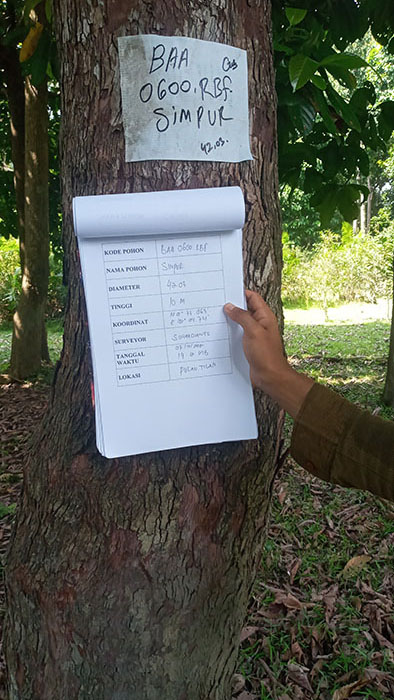 BAA
0600.RBF
SIMPUR
42.03.
KODE POHON BAA 0600.RBF
NAMA POHON SIMPUR
DIAMETER 42.03
TINGGI 10 M
KOORDINAT
SURVEYOR
TANGGAL
WAKTU
LOKASI PULAU TILAN